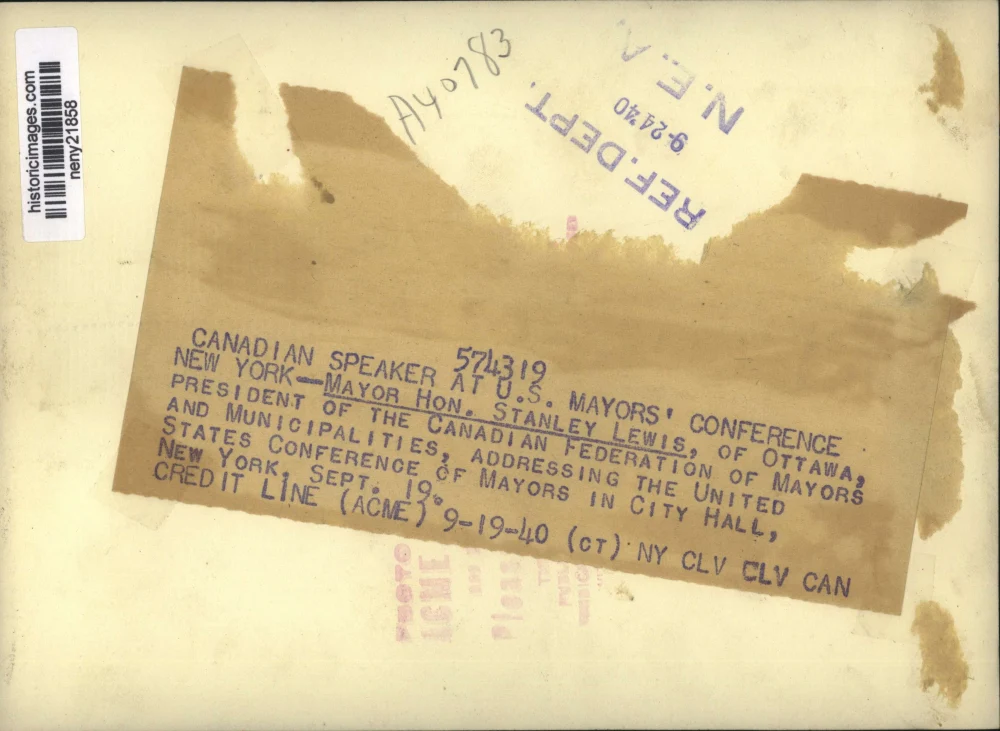 historicimages.com
neny21858
A40783
N.E.A.
9-24'40
REF.DEPT.
574319
CANADIAN SPEAKER AT U.S. MAYORS' CONFERENCE
NEW YORK—MAYOR HON. STANLEY LEWIS, OF OTTAWA,
PRESIDENT OF THE CANADIAN FEDERATION OF MAYORS
AND MUNICIPALITIES, ADDRESSING THE UNITED
STATES CONFERENCE OF MAYORS IN CITY HALL,
NEW YORK, SEPT. 19.
CREDIT LINE (ACME) 9-19-40 (CT) NY CLV CLV CAN
PHOTO
ACME
Please